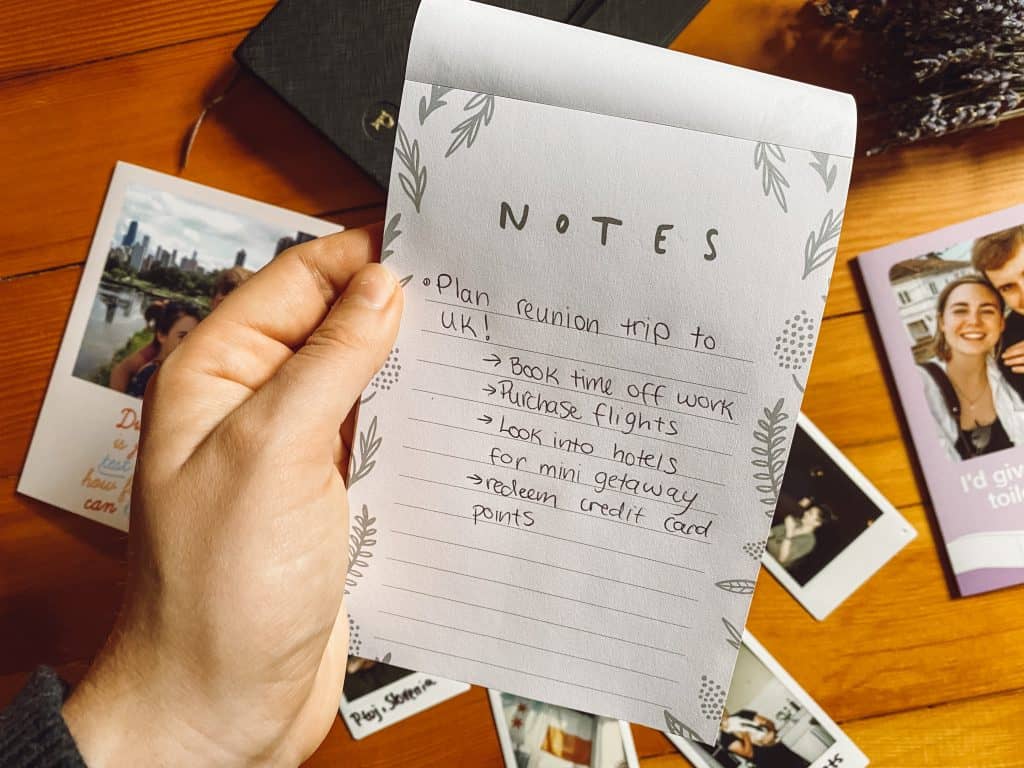 NOTES
• Plan reunion trip to
UK!
→ Book time off work
→ Purchase flights
→ Look into hotels
for mini getaway
→ redeem credit card
points
I'd giv
toil
is
how
can
Ptuj, Slovenia